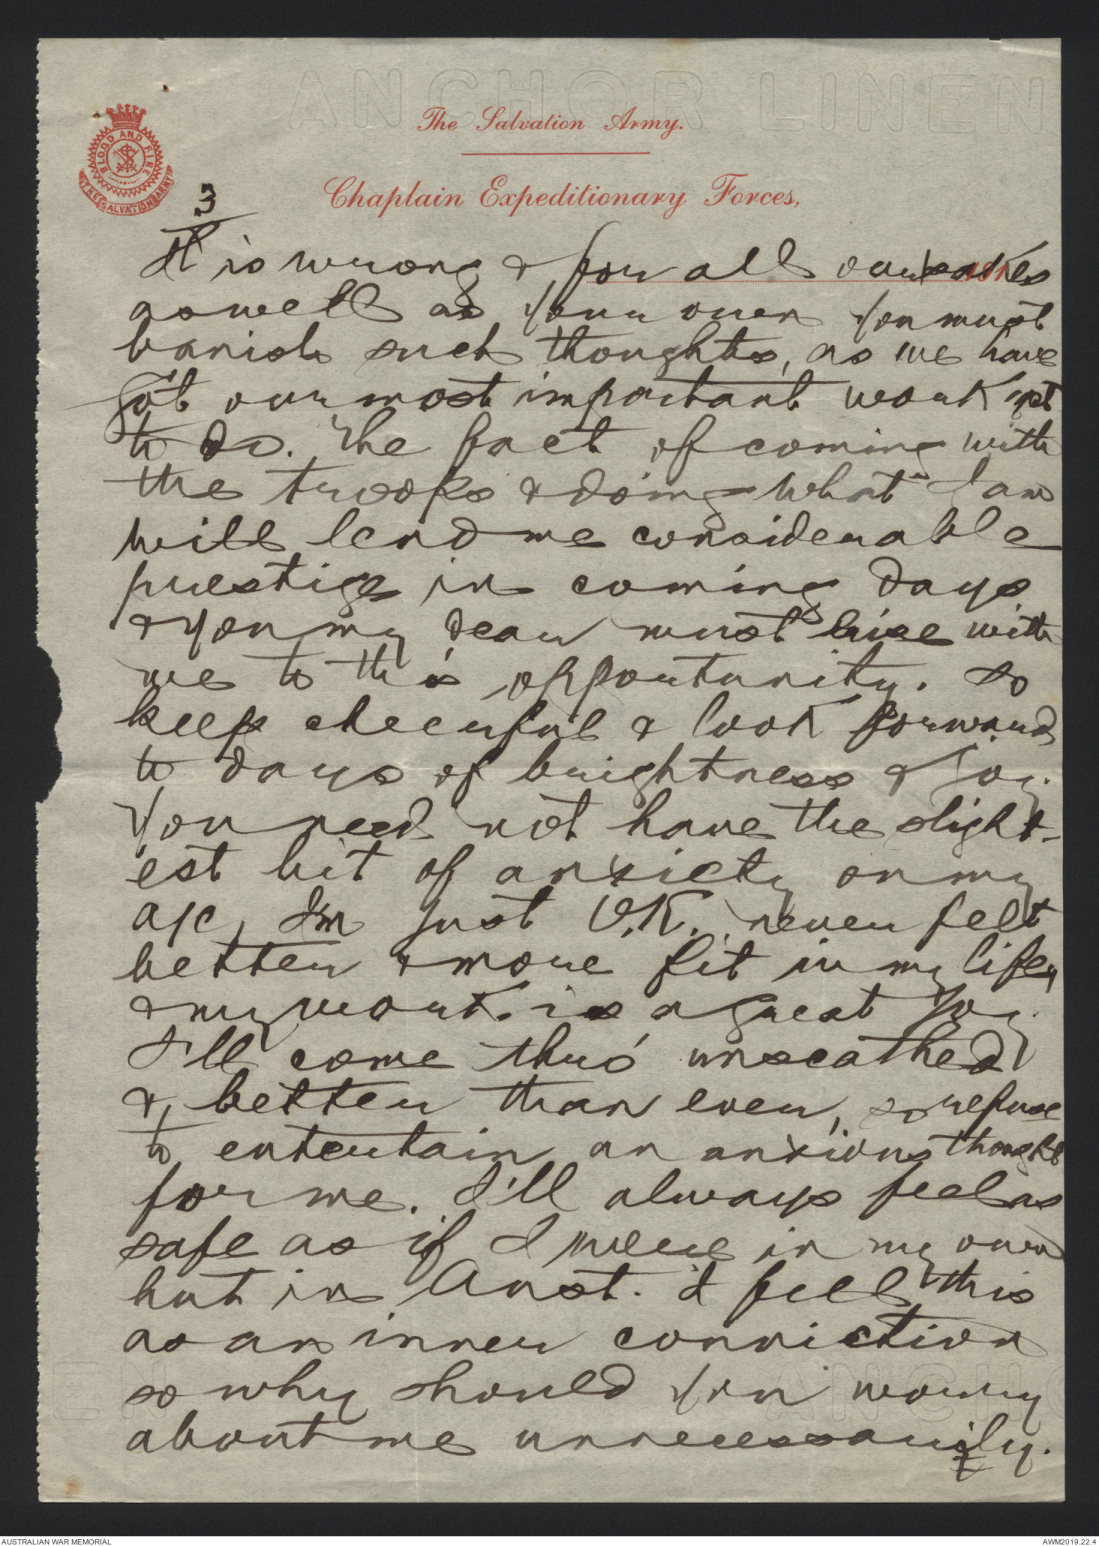 ANCHOR LINEN
The Salvation Army.
BLOOD AND FIRE
THE SALVATION ARMY
Chaplain Expeditionary Forces,
3
191
It is wrong & for all our sakes
as well as your own you must
banish such thoughts, as we have
got our most important work yet
to do. The fact of coming with
the troops & doing what I am
will lend me considerable
prestige in coming days
& you my dear must live with
me to this opportunity. So
keep cheerful & look forward
to days of brightness & joy.
You need not have the slight-
est bit of anxiety on my
a/c, I'm just O.K. never felt
better & more fit in my life,
& my work is a great joy.
I'll come thro' unscathed
& better than ever, so refuse
to entertain an anxious thought
for me. I'll always feel as
safe as if I were in my own
hut in Aust. I feel this
as an inner conviction
so why should you worry
about me unnecessarily.
EN ANCHO
AUSTRALIAN WAR MEMORIAL
AWM2019.22.4